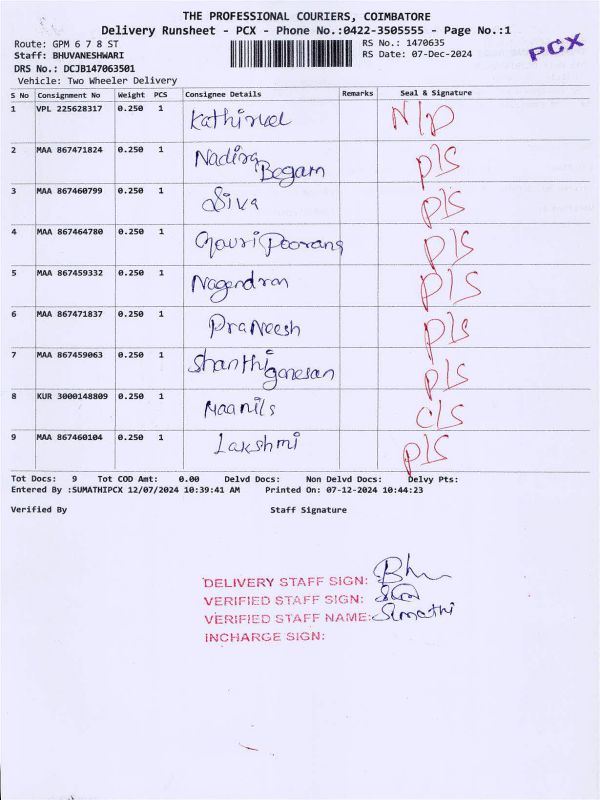 THE PROFESSIONAL COURIERS, COIMBATORE
Delivery Runsheet - PCX - Phone No.:0422-3505555 - Page No.:1
Route: GPM 6 7 8 ST RS No.: 1470635
Staff: BHUVANESHWARI RS Date: 07-Dec-2024
PCX
DRS No.: DCJB147063501
Vehicle: Two Wheeler Delivery
S No Consignment No Weight PCS Consignee Details Remarks Seal & Signature
1 VPL 225628317 0.250 1 Kathirvel N/D
2 MAA 867471824 0.250 1 Nadira Begam P/S
3 MAA 867460799 0.250 1 Siva P/S
4 MAA 867464780 0.250 1 Gouri Poorang P/S
5 MAA 867459332 0.250 1 Nagendran P/S
6 MAA 867471837 0.250 1 PraNeesh P/S
7 MAA 867459063 0.250 1 Shanthi ganesan P/S
8 KUR 3000148809 0.250 1 Maanils C/S
9 MAA 867460104 0.250 1 Lakshmi P/S
Tot Docs: 9 Tot COD Amt: 0.00 Delvd Docs: Non Delvd Docs: Delvy Pts:
Entered By :SUMATHIPCX 12/07/2024 10:39:41 AM Printed On: 07-12-2024 10:44:23
Verified By Staff Signature
DELIVERY STAFF SIGN:
VERIFIED STAFF SIGN:
VERIFIED STAFF NAME: Sumathi
INCHARGE SIGN: